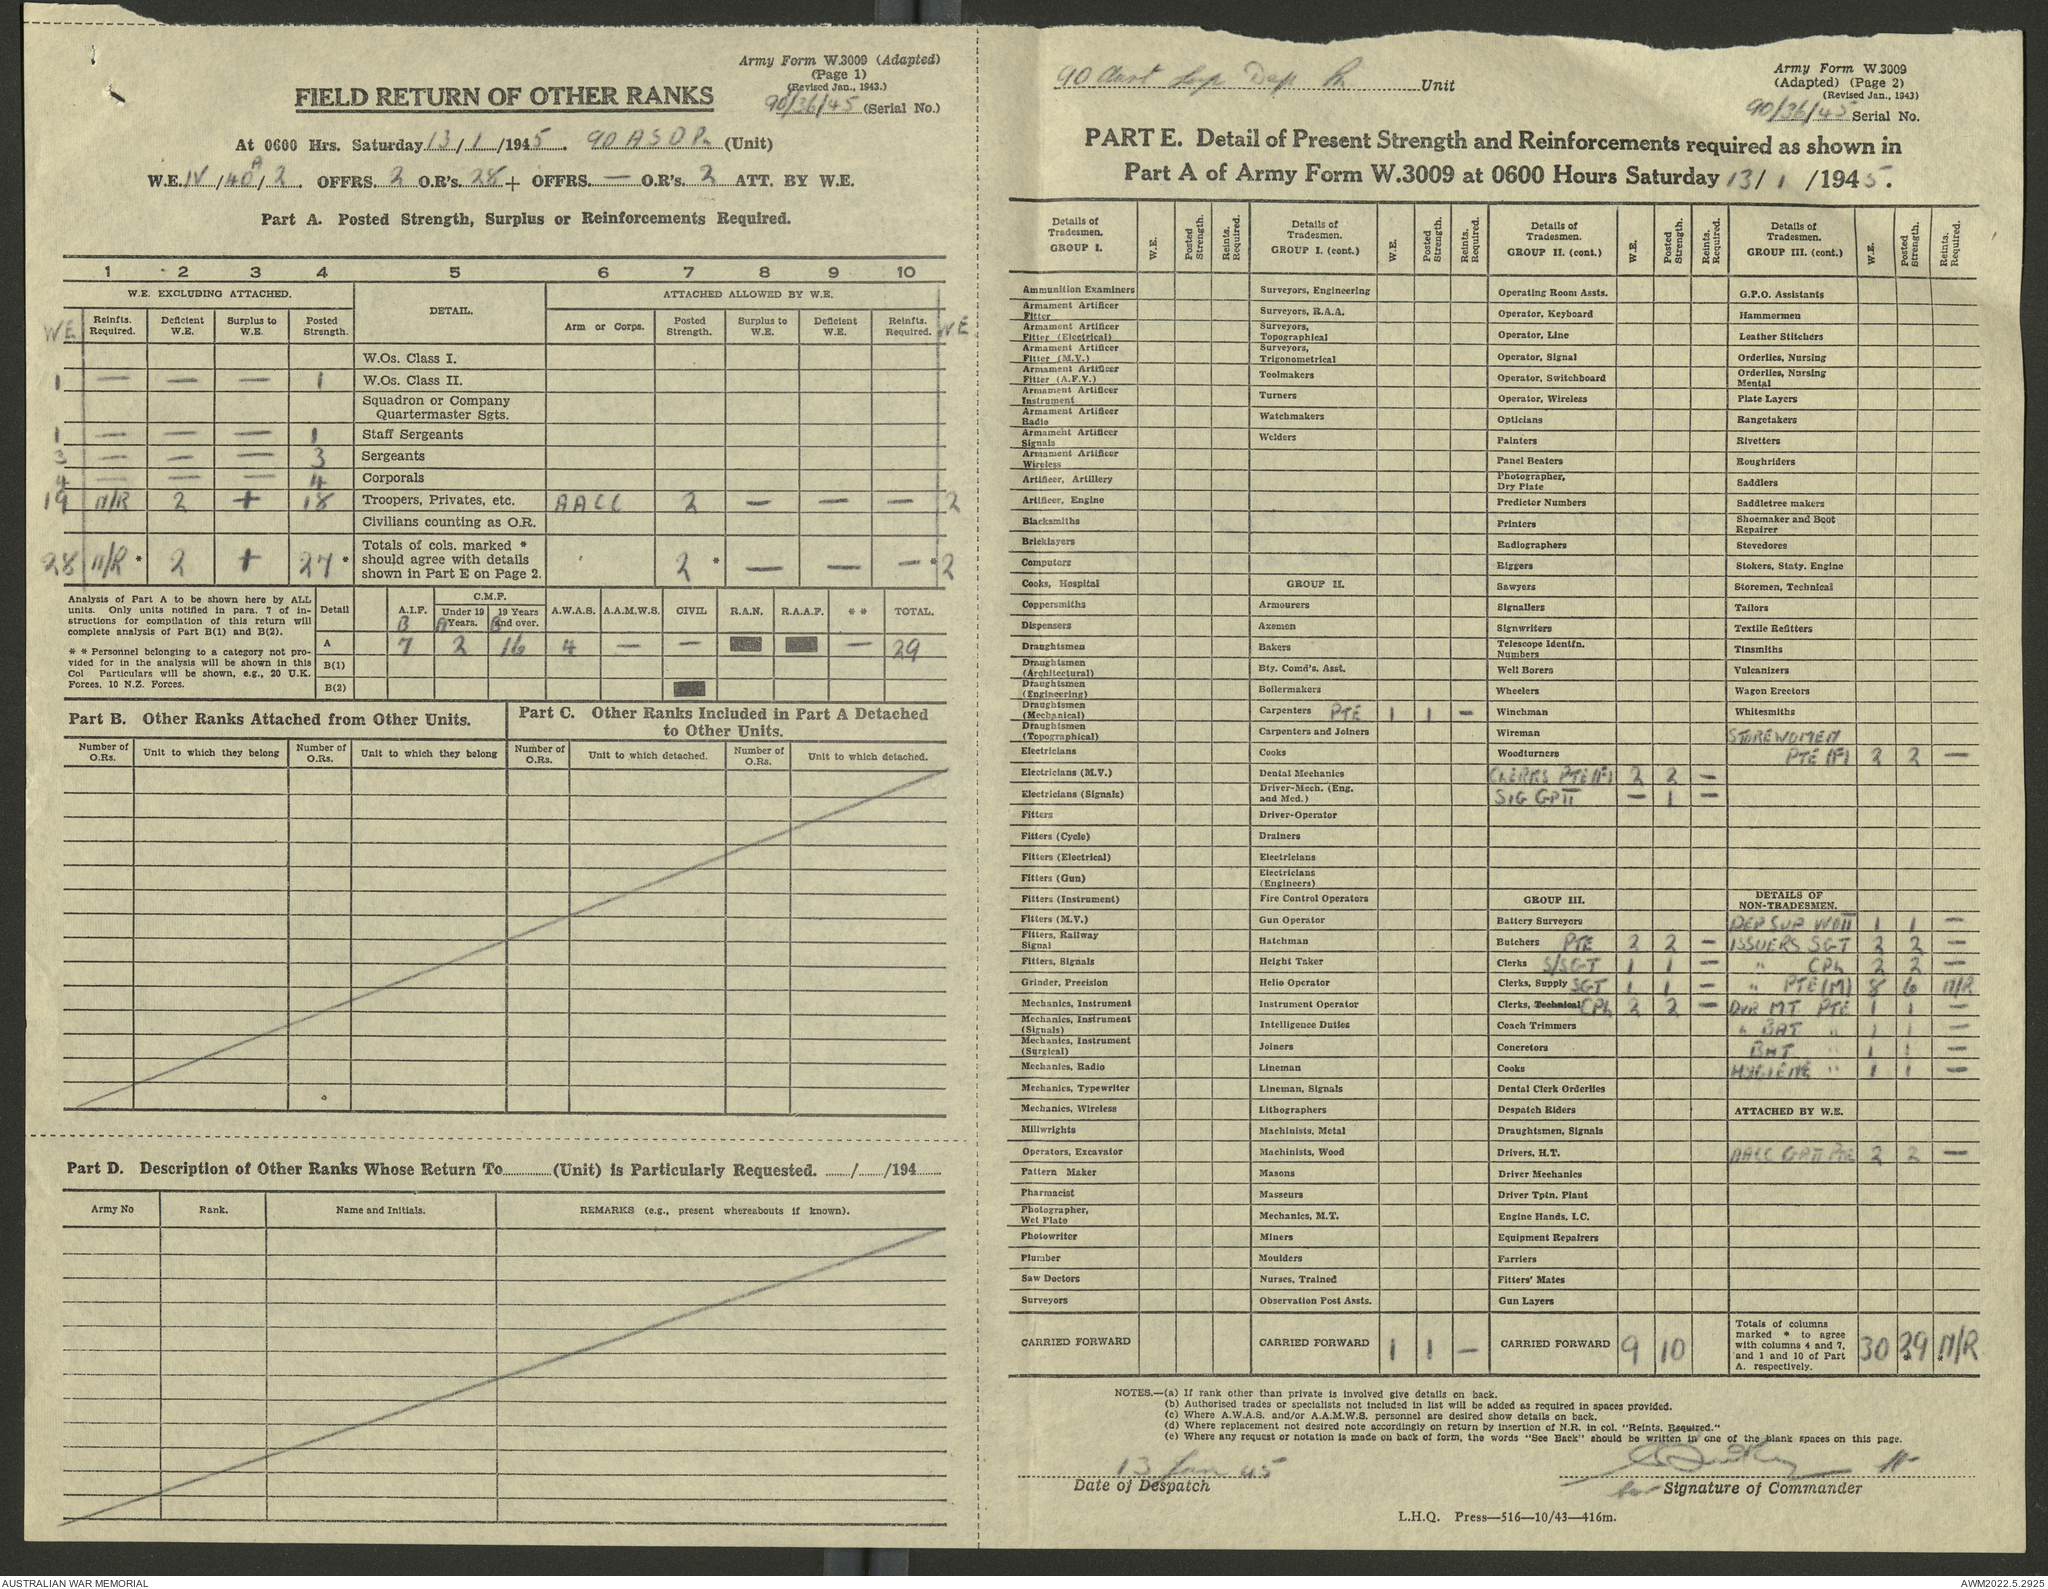 Army Form W.3009 (Adapted)
(Page 1)
(Revised Jan., 1943.)
FIELD RETURN OF OTHER RANKS
90/36/45 (Serial No.)
At 0600 Hrs. Saturday 13/1/1945. 90 A S D Pl. (Unit)
W.E. IV/40A/2. OFFRS. 2 O.R's. 28 + OFFRS. — O.R's. 2 ATT. BY W.E.
Part A. Posted Strength, Surplus or Reinforcements Required.
1 2 3 4 5 6 7 8 9 10
W.E. EXCLUDING ATTACHED. DETAIL. ATTACHED ALLOWED BY W.E.
WE Reinfts. Required. Deficient W.E. Surplus to W.E. Posted Strength. Arm or Corps. Posted Strength. Surplus to W.E. Deficient W.E. Reinfts. Required. WE
W.Os. Class I.
1 — — — 1 W.Os. Class II.
Squadron or Company Quartermaster Sgts.
1 — — — 1 Staff Sergeants
3 — — — 3 Sergeants
4 — — — 4 Corporals
19 N/R 2 + 18 Troopers, Privates, etc. AACC 2 — — — 2
Civilians counting as O.R.
28 N/R * 2 + 27 * Totals of cols. marked * should agree with details shown in Part E on Page 2. 2 * — — — * 2
Analysis of Part A to be shown here by ALL units. Only units notified in para. 7 of instructions for compilation of this return will complete analysis of Part B(1) and B(2).
* * Personnel belonging to a category not provided for in the analysis will be shown in this Col Particulars will be shown, e.g., 20 U.K. Forces, 10 N.Z. Forces.
Detail A.I.F. B C.M.F. Under 19 Years. A 19 Years and over. B A.W.A.S. A.A.M.W.S. CIVIL R.A.N. R.A.A.F. * * TOTAL.
A 7 2 16 4 — — — 29
B(1)
B(2)
Part B. Other Ranks Attached from Other Units.
Number of O.Rs. Unit to which they belong Number of O.Rs. Unit to which they belong
Part C. Other Ranks Included in Part A Detached to Other Units.
Number of O.Rs. Unit to which detached. Number of O.Rs. Unit to which detached.
Part D. Description of Other Ranks Whose Return To (Unit) is Particularly Requested. / /194
Army No Rank. Name and Initials. REMARKS (e.g., present whereabouts if known).
90 Aust Sup Dep Pl Unit
Army Form W.3009
(Adapted) (Page 2)
(Revised Jan., 1943)
90/36/45 Serial No.
PART E. Detail of Present Strength and Reinforcements required as shown in
Part A of Army Form W.3009 at 0600 Hours Saturday 13/1/1945.
Details of Tradesmen. GROUP I. W.E. Posted Strength. Reints. Required.
Ammunition Examiners
Armament Artificer Fitter
Armament Artificer Fitter (Electrical)
Armament Artificer Fitter (M.V.)
Armament Artificer Fitter (A.F.V.)
Armament Artificer Instrument
Armament Artificer Radio
Armament Artificer Signals
Armament Artificer Wireless
Artificer, Artillery
Artificer, Engine
Blacksmiths
Bricklayers
Computors
Cooks, Hospital
Coppersmiths
Dispensers
Draughtsmen
Draughtsmen (Architectural)
Draughtsmen (Engineering)
Draughtsmen (Mechanical)
Draughtsmen (Topographical)
Electricians
Electricians (M.V.)
Electricians (Signals)
Fitters
Fitters (Cycle)
Fitters (Electrical)
Fitters (Gun)
Fitters (Instrument)
Fitters (M.V.)
Fitters, Railway Signal
Fitters, Signals
Grinder, Precision
Mechanics, Instrument
Mechanics, Instrument (Signals)
Mechanics, Instrument (Surgical)
Mechanics, Radio
Mechanics, Typewriter
Mechanics, Wireless
Millwrights
Operators, Excavator
Pattern Maker
Pharmacist
Photographer, Wet Plate
Photowriter
Plumber
Saw Doctors
Surveyors
CARRIED FORWARD
Details of Tradesmen. GROUP I. (cont.) W.E. Posted Strength. Reints. Required.
Surveyors, Engineering
Surveyors, R.A.A.
Surveyors, Topographical
Surveyors, Trigonometrical
Toolmakers
Turners
Watchmakers
Welders
GROUP II.
Armourers
Axemen
Bakers
Bty. Comd's. Asst.
Boilermakers
Carpenters PTE 1 1 —
Carpenters and Joiners
Cooks
Dental Mechanics
Driver-Mech. (Eng. and Med.)
Driver-Operator
Drainers
Electricians
Electricians (Engineers)
Fire Control Operators
Gun Operator
Hatchman
Height Taker
Helio Operator
Instrument Operator
Intelligence Duties
Joiners
Lineman
Lineman, Signals
Lithographers
Machinists, Metal
Machinists, Wood
Masons
Masseurs
Mechanics, M.T.
Miners
Moulders
Nurses, Trained
Observation Post Assts.
CARRIED FORWARD 1 1 —
Details of Tradesmen. GROUP II. (cont.) W.E. Posted Strength. Reints. Required.
Operating Room Assts.
Operator, Keyboard
Operator, Line
Operator, Signal
Operator, Switchboard
Operator, Wireless
Opticians
Painters
Panel Beaters
Photographer, Dry Plate
Predictor Numbers
Printers
Radiographers
Riggers
Sawyers
Signallers
Signwriters
Telescope Identfn. Numbers
Well Borers
Wheelers
Winchman
Wireman
Woodturners
CLERKS PTE (F) 2 2 —
SIG GP II — 1 —
GROUP III.
Battery Surveyors
Butchers PTE 2 2 —
Clerks S/SGT 1 1 —
Clerks, Supply SGT 1 1 —
Clerks, Technical CPL 2 2 —
Coach Trimmers
Concretors
Cooks
Dental Clerk Orderlies
Despatch Riders
Draughtsmen, Signals
Drivers, H.T.
Driver Mechanics
Driver Tptn. Plant
Engine Hands, I.C.
Equipment Repairers
Farriers
Fitters' Mates
Gun Layers
CARRIED FORWARD 9 10
Details of Tradesmen. GROUP III. (cont.) W.E. Posted Strength. Reints. Required.
G.P.O. Assistants
Hammermen
Leather Stitchers
Orderlies, Nursing
Orderlies, Nursing Mental
Plate Layers
Rangetakers
Rivetters
Roughriders
Saddlers
Saddletree makers
Shoemaker and Boot Repairer
Stevedores
Stokers, Staty. Engine
Storemen, Technical
Tailors
Textile Refitters
Tinsmiths
Vulcanizers
Wagon Erectors
Whitesmiths
STOREWOMEN
PTE (F) 2 2 —
DETAILS OF NON-TRADESMEN.
DEP SUP WO II 1 1 —
ISSUERS SGT 2 2 —
" CPL 2 2 —
" PTE (M) 8 6 N/R
DVR MT PTE 1 1 —
" BAT " 1 1 —
BAT " 1 1 —
HYGIENE " 1 1 —
ATTACHED BY W.E.
AACC GP II PTE 2 2 —
Totals of columns marked * to agree with columns 4 and 7, and 1 and 10 of Part A. respectively. 30 29 * N/R *
NOTES.—(a) If rank other than private is involved give details on back.
(b) Authorised trades or specialists not included in list will be added as required in spaces provided.
(c) Where A.W.A.S. and/or A.A.M.W.S. personnel are desired show details on back.
(d) Where replacement not desired note accordingly on return by insertion of N.R. in col. "Reints. Required."
(e) Where any request or notation is made on back of form, the words "See Back" should be written in one of the blank spaces on this page.
13 Jan 45
Date of Despatch
for Signature of Commander
L.H.Q. Press—516—10/43—416m.
AUSTRALIAN WAR MEMORIAL
AWM2022.5.2925